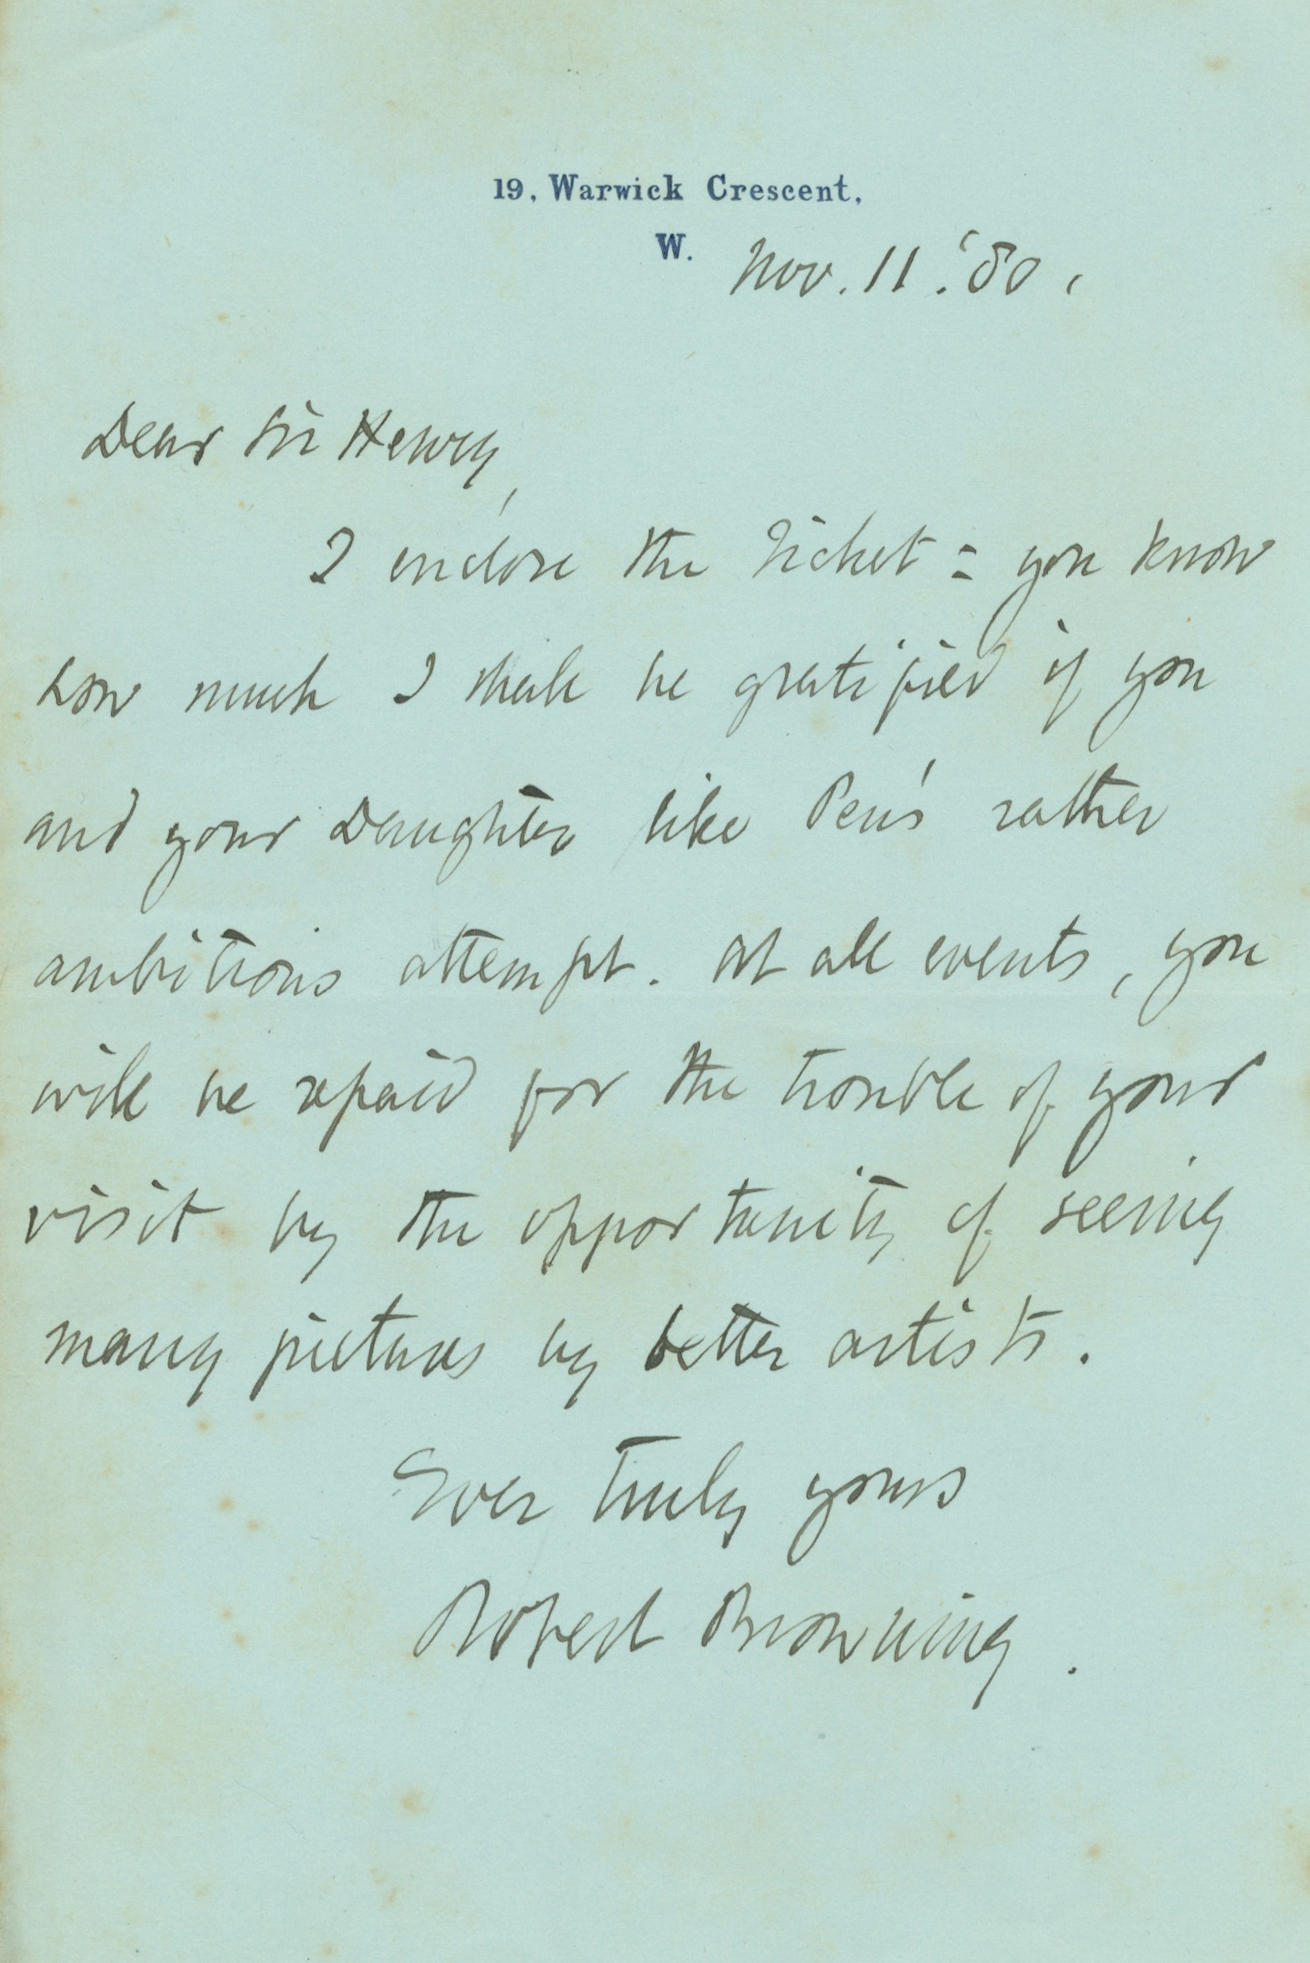 19, Warwick Crescent,
W.
Nov. 11. '80.
Dear Sir Henry,
I enclose the ticket: you know
how much I shall be gratified if you
and your Daughter like Pen's rather
ambitious attempt. At all events, you
will be repaid for the trouble of your
visit by the opportunity of seeing
many pictures by better artists.
Ever truly yours
Robert Browning.